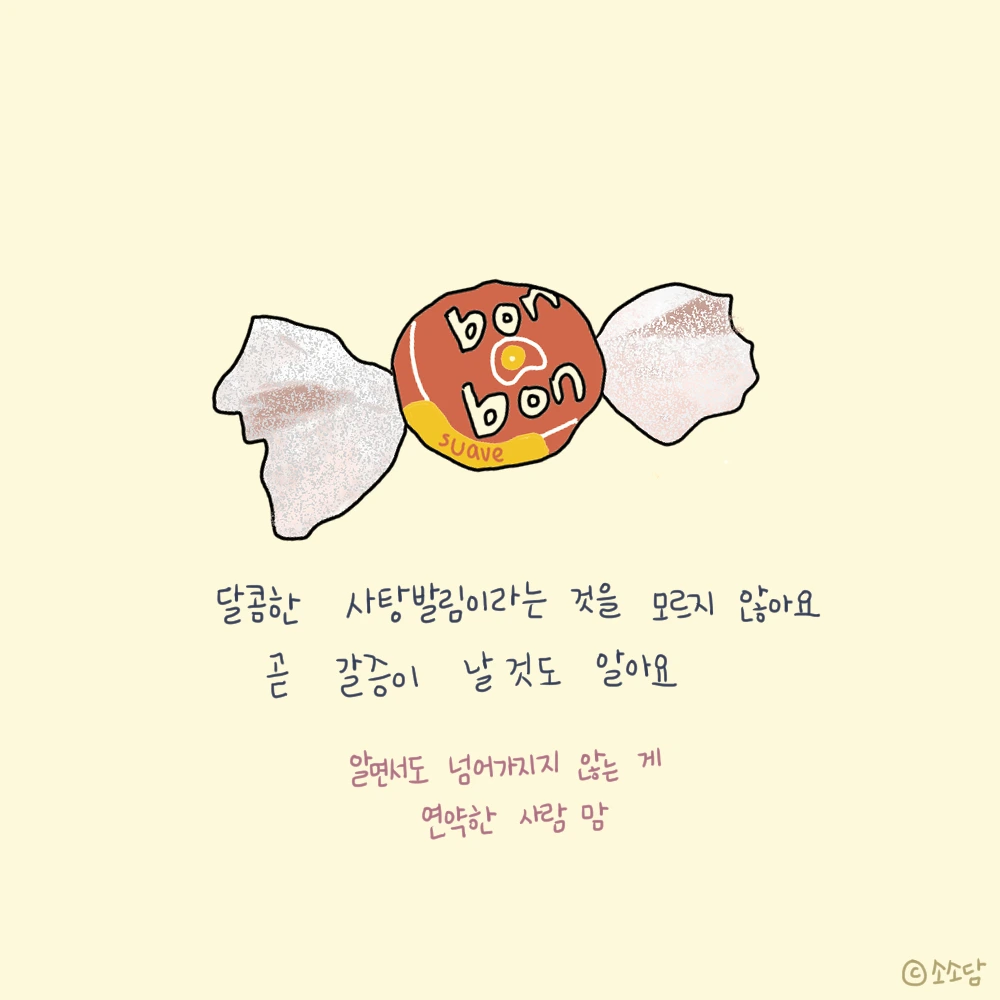 bon
bon
suave
달콤한 사탕발림이라는 것을 모르지 않아요
곧 갈증이 날 것도 알아요
알면서도 넘어가지지 않는 게
연약한 사람 맘
©소소담